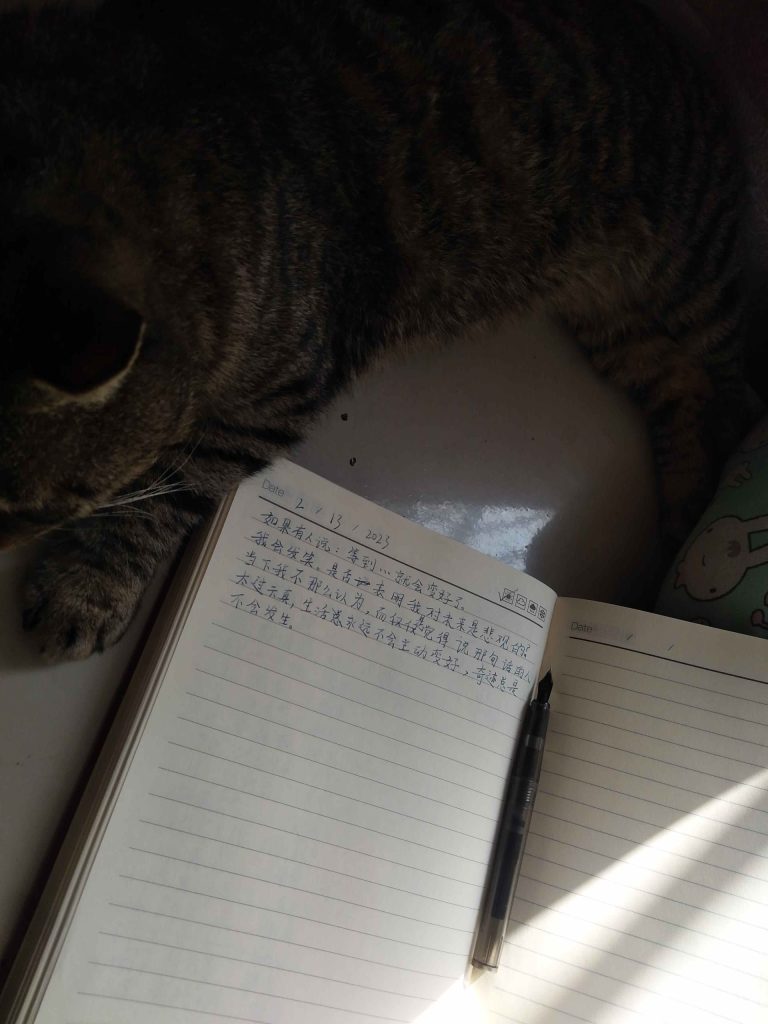 Date 2 / 13 / 2023
如果有人说：等到…就会变好了。
我会发笑。是否表明我对未来是悲观的？
当下我不那么认为，而仅仅是觉得说那句话的人
太过天真，生活总永远不会主动变好，奇迹总是
不会发生。
Date / /